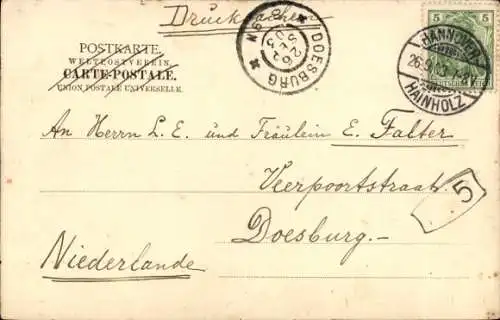 Drucksachen
POSTKARTE.
WELTPOSTVEREIN
CARTE POSTALE.
UNION POSTALE UNIVERSELLE.
DOESBURG
26 SEP 03
5 5
HANNOVER
26.9.03
HAINHOLZ
An Herrn L. E. und Fräulein E. Falter
Veerpoortstraat.
5
Doesburg.-
Niederlande